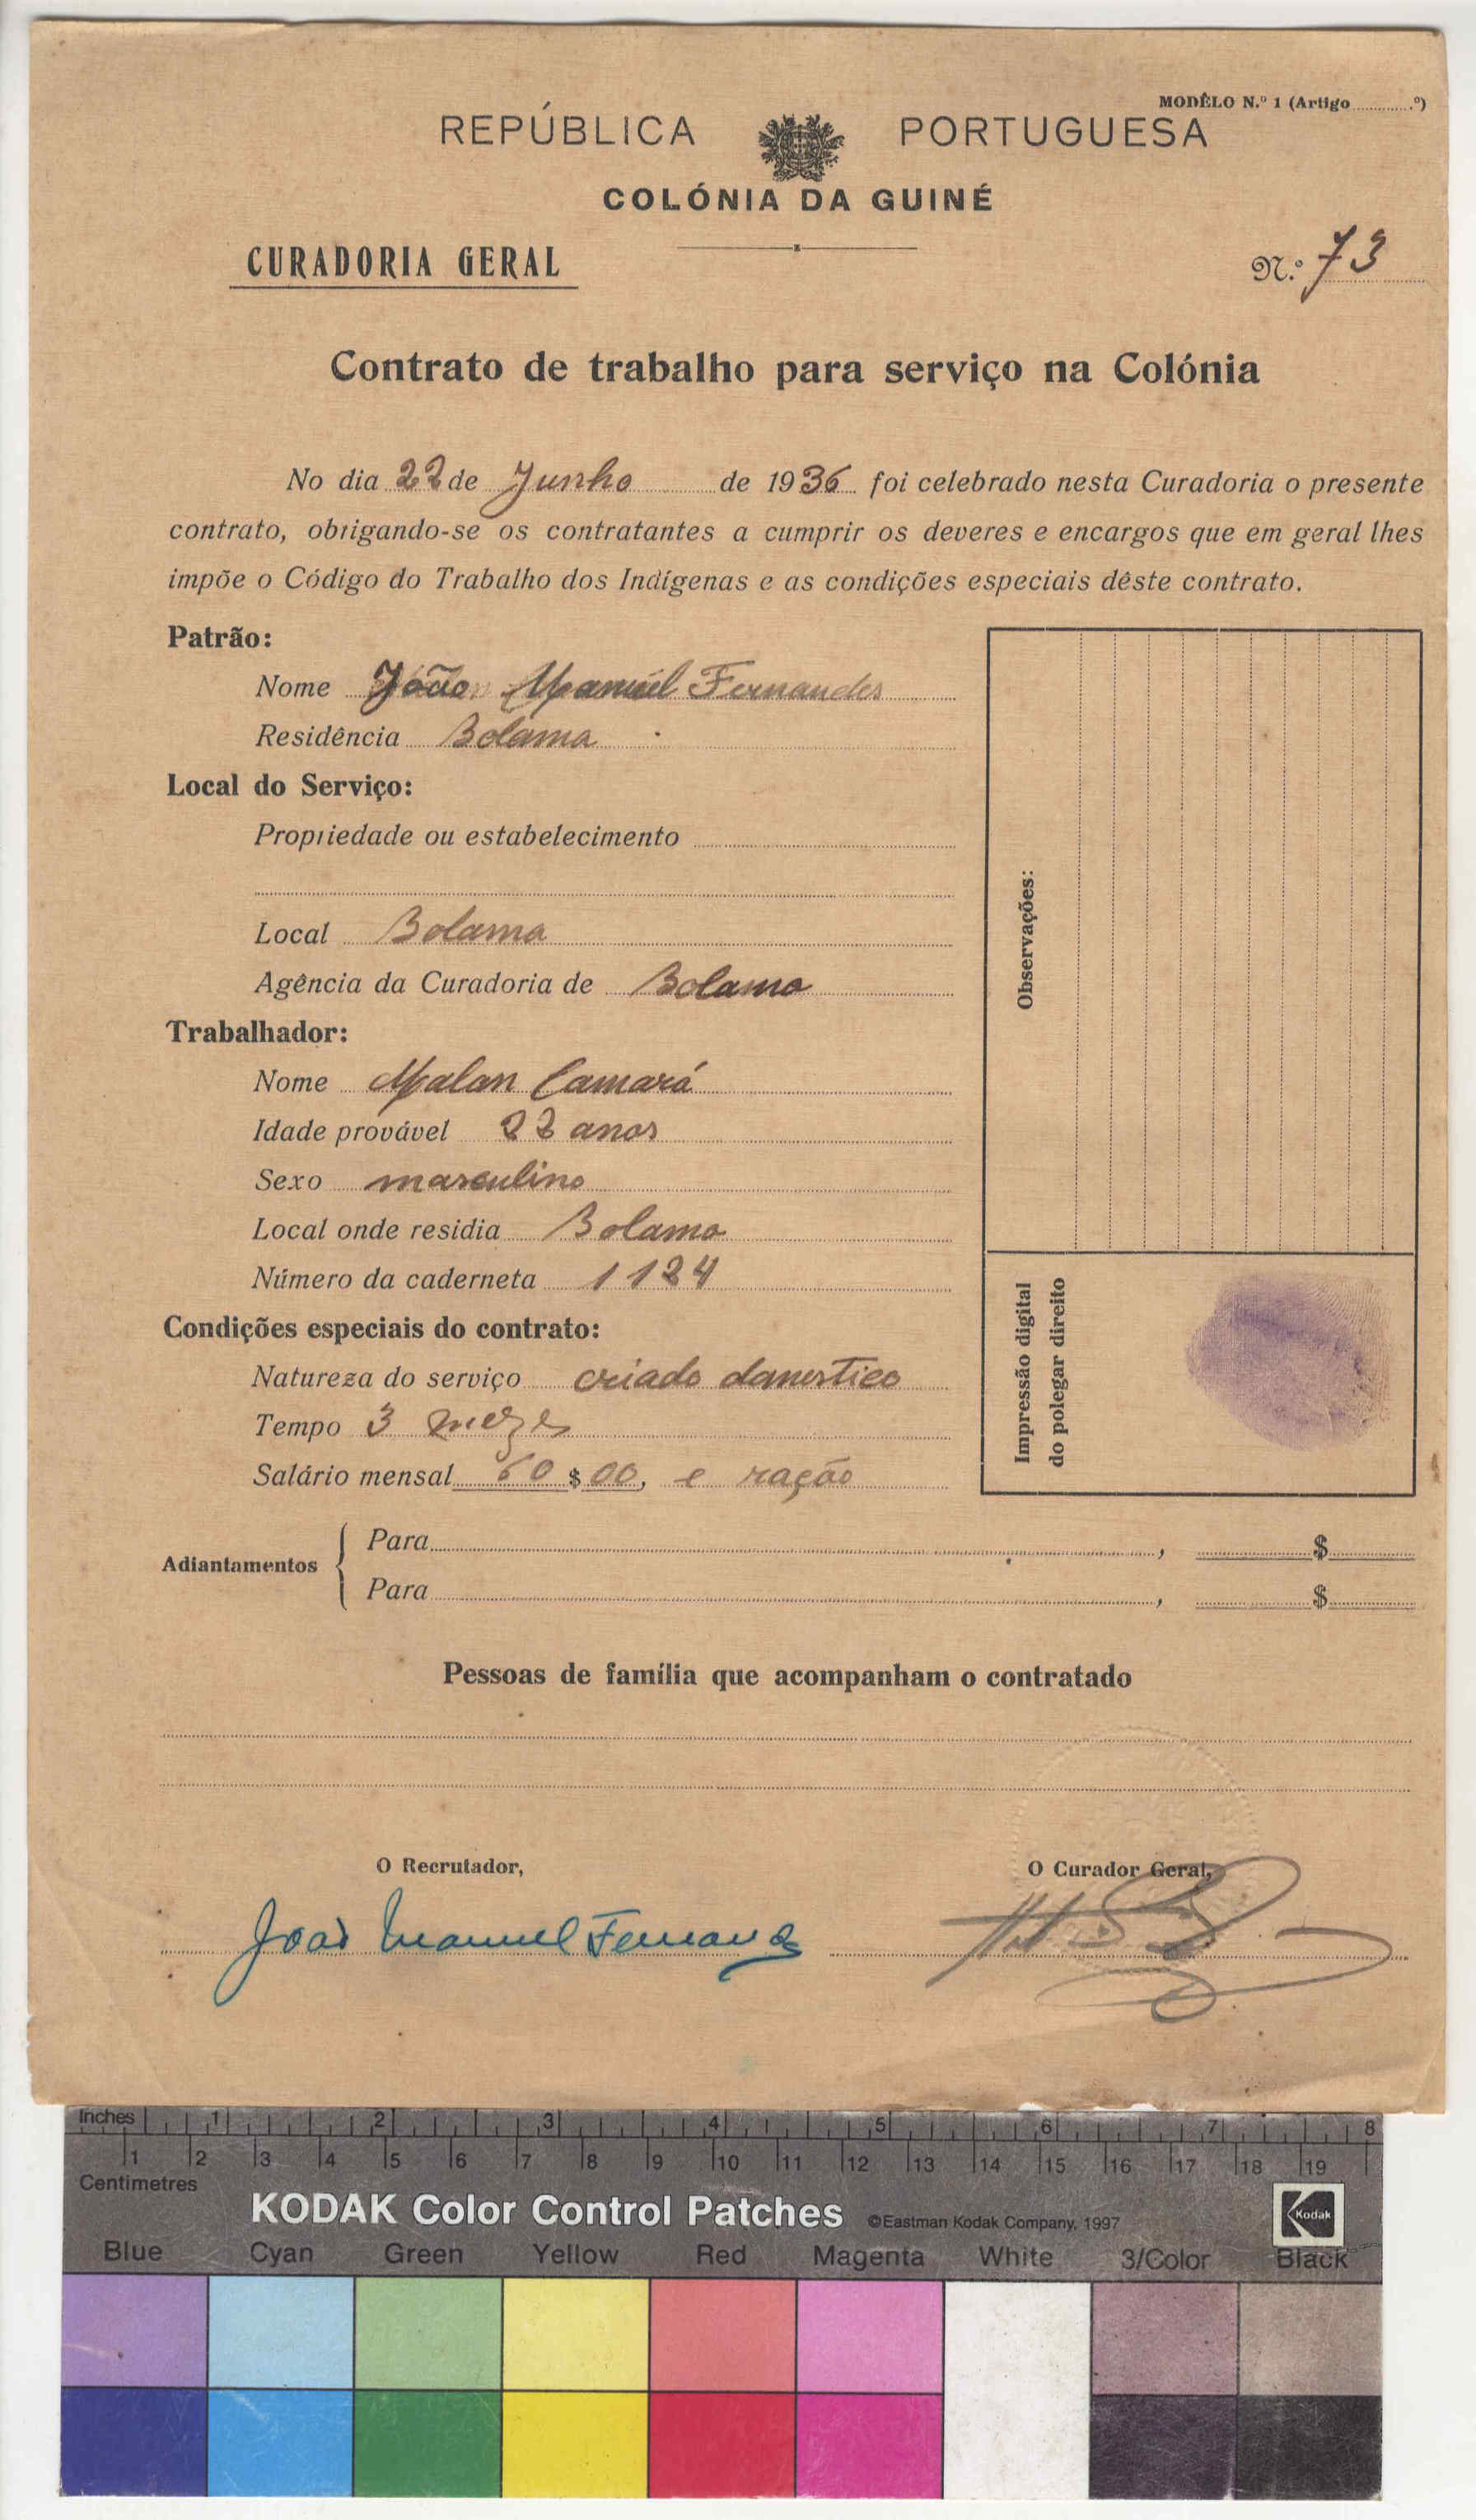 MODÊLO N.º 1 (Artigo ............º)
REPÚBLICA PORTUGUESA
COLÓNIA DA GUINÉ
CURADORIA GERAL
N.º 73
Contrato de trabalho para serviço na Colónia
No dia 22 de Junho de 1936 foi celebrado nesta Curadoria o presente
contrato, obrigando-se os contratantes a cumprir os deveres e encargos que em geral lhes
impõe o Código do Trabalho dos Indígenas e as condições especiais dêste contrato.
Patrão:
Nome João Manuel Fernandes
Residência Bolama
Local do Serviço:
Propriedade ou estabelecimento
Local Bolama
Agência da Curadoria de Bolama
Trabalhador:
Nome Malan Camará
Idade provável 22 anos
Sexo masculino
Local onde residia Bolama
Número da caderneta 1124
Condições especiais do contrato:
Natureza do serviço criado domestico
Tempo 3 mezes
Salário mensal 60$00, e ração
Observações:
Impressão digital
do polegar direito
Adiantamentos
Para , $
Para , $
Pessoas de família que acompanham o contratado
O Recrutador,
O Curador Geral,
João Manuel Fernandes
Inches 1 2 3 4 5 6 7 8
1 2 3 4 5 6 7 8 9 10 11 12 13 14 15 16 17 18 19
Centimetres
KODAK Color Control Patches ©Eastman Kodak Company, 1997
Kodak
Blue Cyan Green Yellow Red Magenta White 3/Color Black